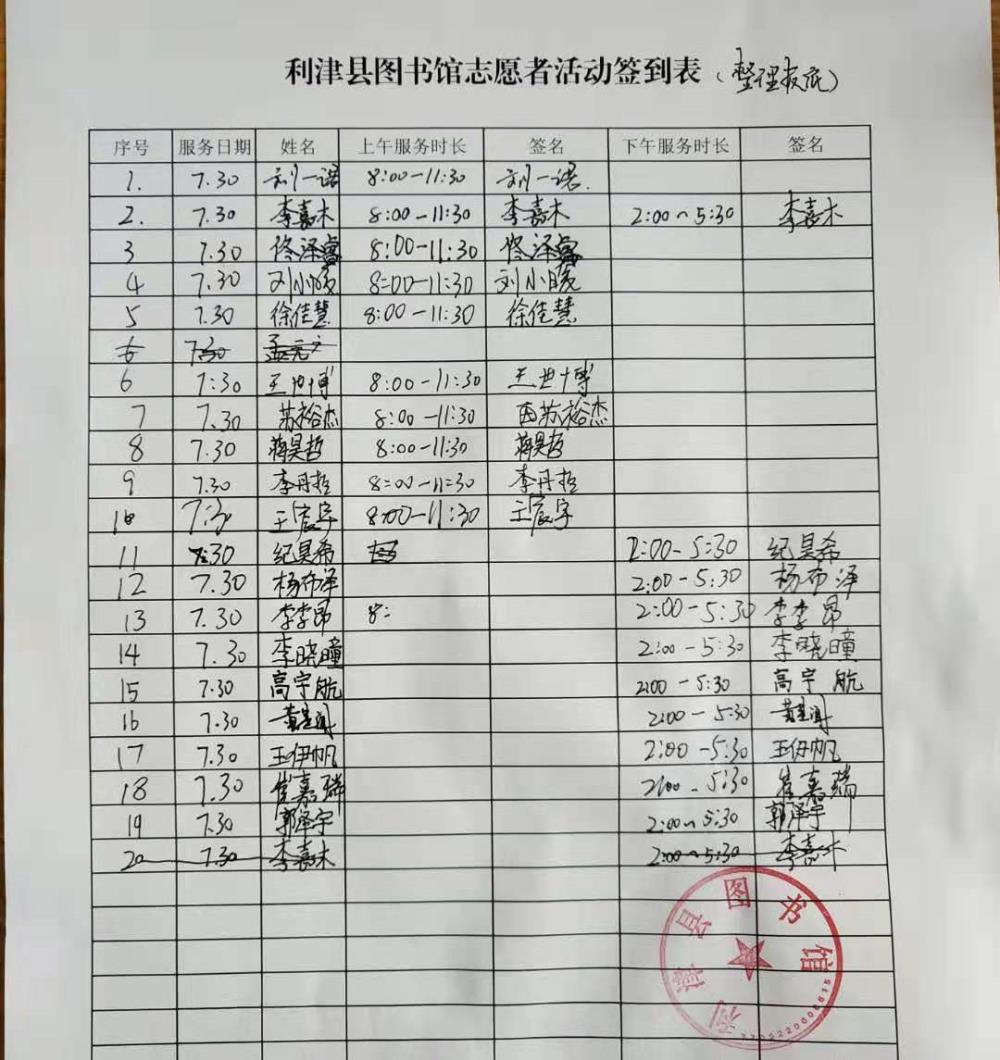 利津县图书馆志愿者活动签到表（整理报底）
序号 服务日期 姓名 上午服务时长 签名 下午服务时长 签名
1. 7.30 刘一诺 8:00-11:30 刘一诺.
2. 7.30 李嘉木 8:00-11:30 李嘉木 2:00~5:30 李嘉木
3 7.30 佟泽睿 8:00-11:30 佟泽睿
4 7.30 刘小暖 8:00-11:30 刘小暖
5 7.30 徐佳慧 8:00-11:30 徐佳慧
6 7.30
6 7:30 王世博 8:00-11:30 王世博
7 7.30 苏裕杰 8:00-11:30 苏裕杰
8 7.30 蒋昊哲 8:00-11:30 蒋昊哲
9 7.30 李丹哲 8:00-11:30 李丹哲
10 7:30 王宸宇 8:00-11:30 王宸宇
11 7:30 纪昊希 2:00-5:30 纪昊希
12 7.30 杨布泽 2:00-5:30 杨布泽
13 7.30 李李昂 8: 2:00-5:30 李李昂
14 7.30 李晓曈 2:00-5:30 李晓曈
15 7.30 高宇航 2:00-5:30 高宇航
16 7.30 黄星阅 2:00-5:30 黄星阅
17 7.30 王伊帆 2:00-5:30 王伊帆
18 7.30 崔嘉瑞 2:00-5:30 崔嘉瑞
19 7.30 郭泽宇 2:00~5:30 郭泽宇
20 7.30 李嘉木 2:00~5:30 李嘉木
利津县图书馆